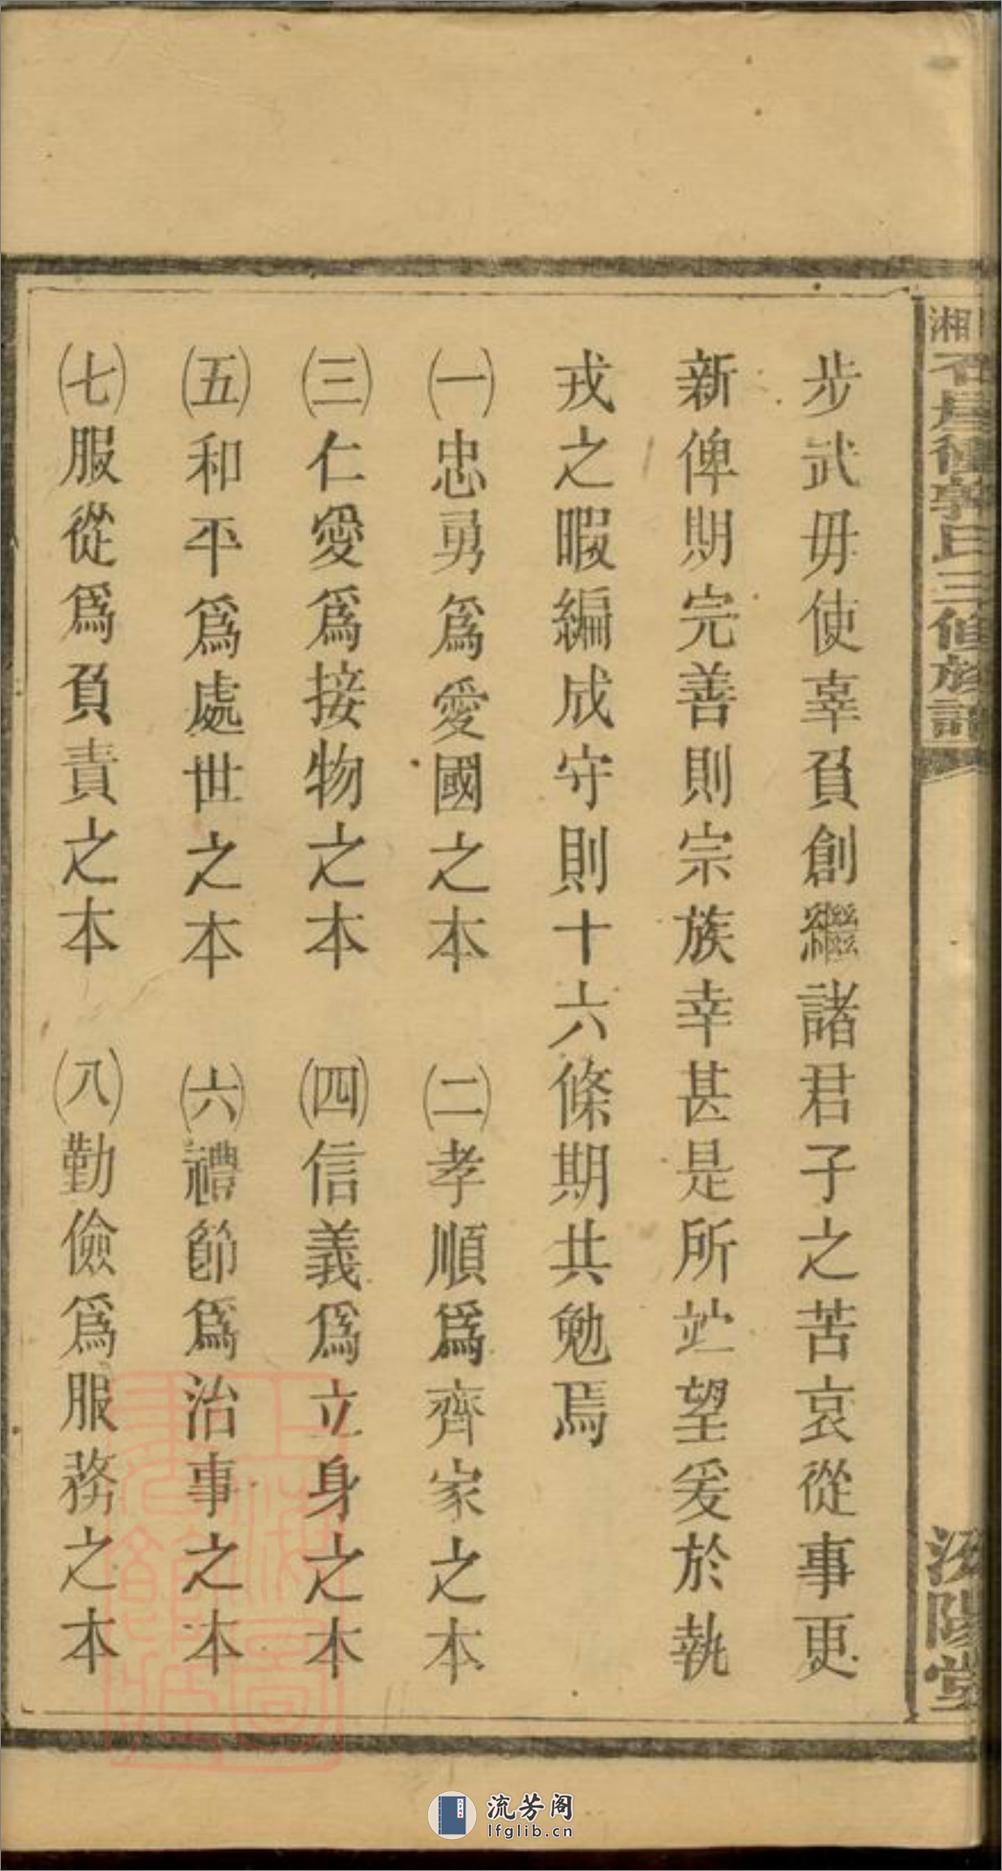 步武毋使辜負創繼諸君子之苦哀從事更
新俾期完善則宗族幸甚是所竚望爰於執
戎之暇編成守則十六條期共勉焉
㈠忠勇爲愛國之本 ㈡孝順爲齊家之本
㈢仁愛爲接物之本 ㈣信義爲立身之本
㈤和平爲處世之本 ㈥禮節爲治事之本
㈦服從爲負責之本 ㈧勤儉爲服務之本
湘
郭氏三修族譜
汾陽堂
上海圖書館藏
流芳阁
lfglib.cn